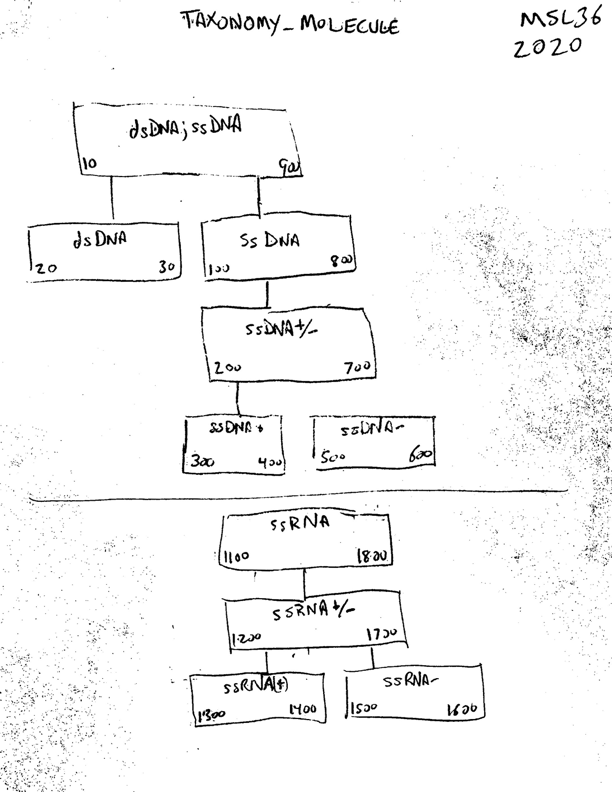 TAXONOMY_MOLECULE
MSL36
2020
dsDNA; ssDNA
10 900
dsDNA
20 30
SS DNA
100 800
ssDNA+/-
200 700
ssDNA+
300 400
ssDNA-
500 600
ssRNA
1100 1800
ssRNA+/-
1200 1700
ssRNA(+)
1300 1400
ssRNA-
1500 1600